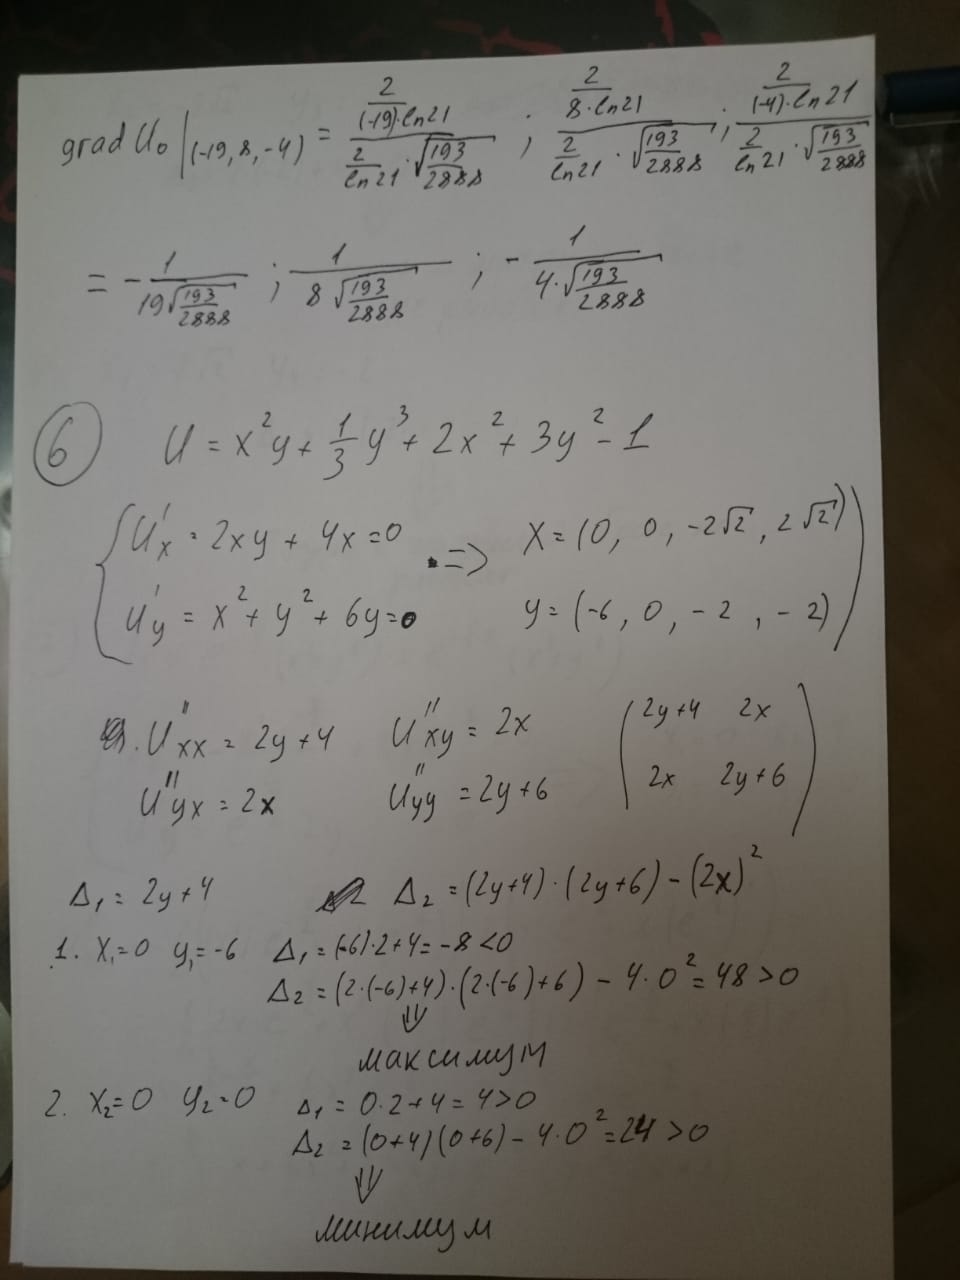 grad U₀|(-19, 8, -4) = (2/((-19)·ln21))/((2/ln21)·√(193/2888)) ; (2/(8·ln21))/((2/ln21)·√(193/2888)) ; (2/((-4)·ln21))/((2/ln21)·√(193/2888))
= -1/(19√(193/2888)) ; 1/(8√(193/2888)) ; -1/(4·√(193/2888))
6 U = x²y + 1/3 y³ + 2x² + 3y² - 1
{ U'x = 2xy + 4x = 0 => X = (0, 0, -2√2, 2√2)
U'y = x² + y² + 6y = 0 y = (-6, 0, -2, -2) )
U''xx = 2y + 4 U''xy = 2x ( 2y+4 2x
U''yx = 2x U''yy = 2y + 6 2x 2y+6 )
Δ₁ = 2y + 4 Δ₂ = (2y+4)·(2y+6) - (2x)²
1. X₁=0 y₁=-6 Δ₁ = (-6)·2+4 = -8 < 0
Δ₂ = (2·(-6)+4)·(2·(-6)+6) - 4·0² = 48 > 0
⇓
максимум
2. X₂=0 y₂=0 Δ₁ = 0·2+4 = 4 > 0
Δ₂ = (0+4)(0+6) - 4·0² = 24 > 0
⇓
минимум